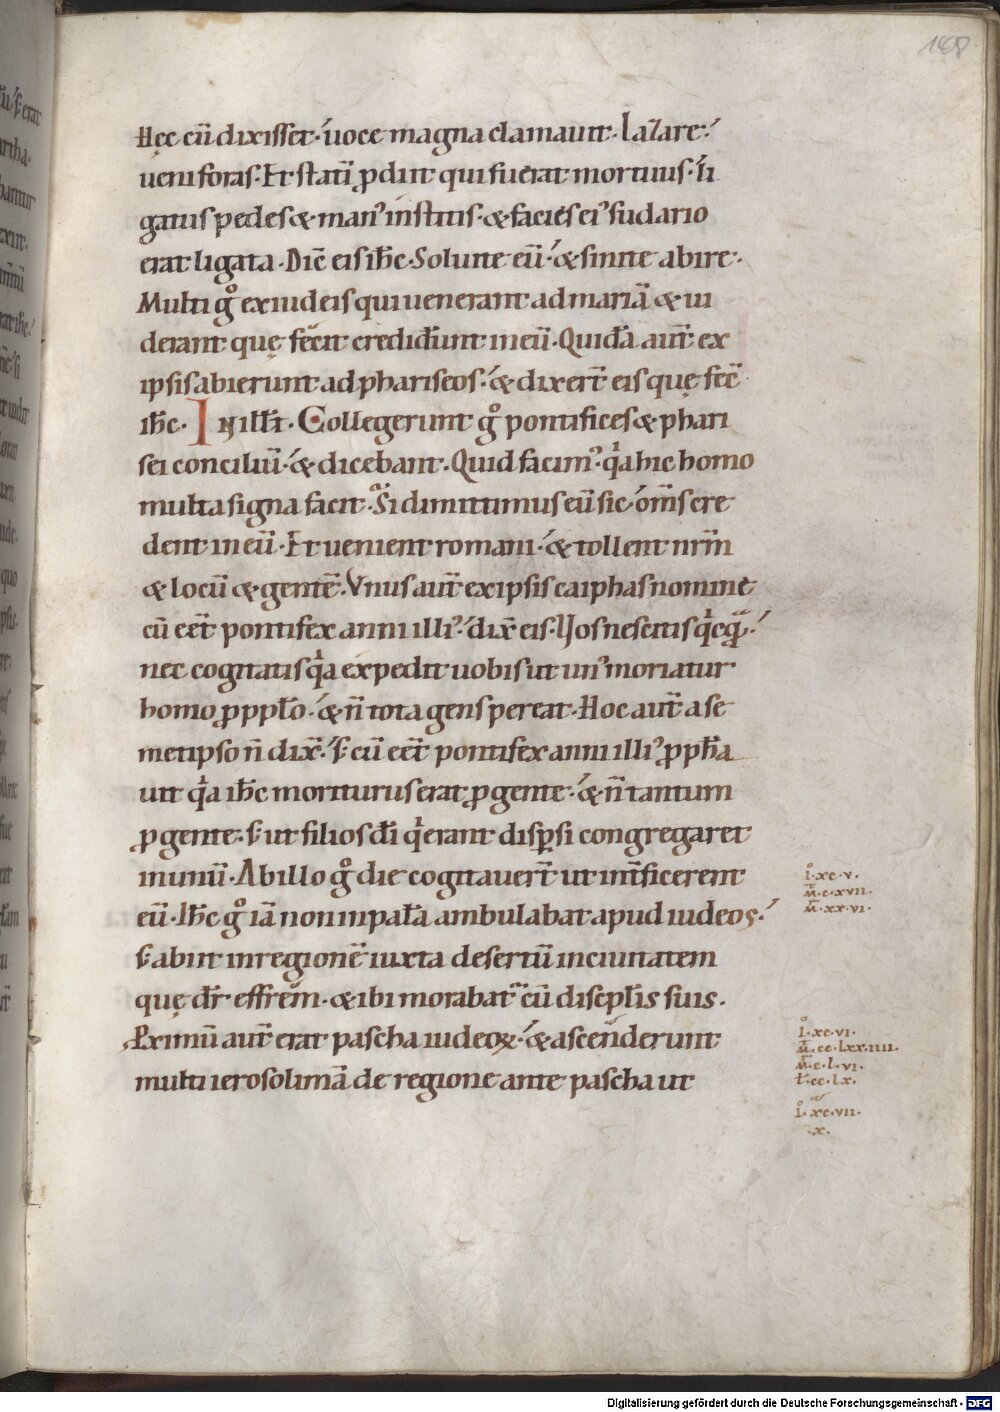 188
Hęc cū dixisset· uoce magna clamauit· lazare·
ueni foras· Et statī ꝓdiit qui fuerat mortuus· li
gatus pedes & man᾽ institis· & facies ei᾽ sudario
erat ligata· Dic̄ eis ih̄c· Soluite eū· & sinite abire·
Multi gͦ ex iudeis qui uenerant ad mariā & ui
derant quę fecit credider̄unt in eū· Quidā aut̄ ex
ipsis abierunt ad phariseos· & dixer̄t eis quę fec̄
ih̄c· In ill̄ t̄· Collegerunt gͦ pontifices & phari
sei conciliū· & dicebant· Quid facim᾽ qͥa hic homo
multa signa facit· Si dimittimus eū sic· om̄s cre
dent in eū· Et uenient romani· & tollent nr̄m
& locū & gentē· Vnus aut̄ ex ipsis caiphas nomine
cū eēt pontifex anni illi᾽· dix̄ eis· Uos nescitis qͥcqᷓ·
nec cogitatis qͥa expedit uobis ut un᾽ moriatur
homo ꝓ ppl̄o· & n̄ tota gens pereat· Hoc aut̄ a se
metipso n̄ dix̄· s; cū eēt pontifex anni illi᾽ ꝓph̄a
uit qͥa ih̄c moriturus erat ꝓ gente· & n̄ tantum
ꝓ gente· s; ut filios dī qͥ erant disꝑsi congregaret
in unū· Ab illo gͦ die cogitauer̄t ut int̄ficerent
eū· Ih̄c gͦ iā non in palā ambulabat apud iudeos·
s; abiit in regionē iuxta desertū in ciuitatem
quę dr̄ effrēm· & ibi morabat᷑ cū discipl̄is suis·
Pximū aut̄ erat pascha iudeoꝝ· & ascenderunt
multi ierosolimā de regione ante pascha ut
i·xc·v·
m̄·c·xvii·
m̄·xx·vi·
i·xc·vi·
m̄·cc·lxx·iiii·
m̄·c·l·vi·
l̄·cc·lx·
i·xc·vii·
·x·
Digitalisierung gefördert durch die Deutsche Forschungsgemeinschaft - DFG